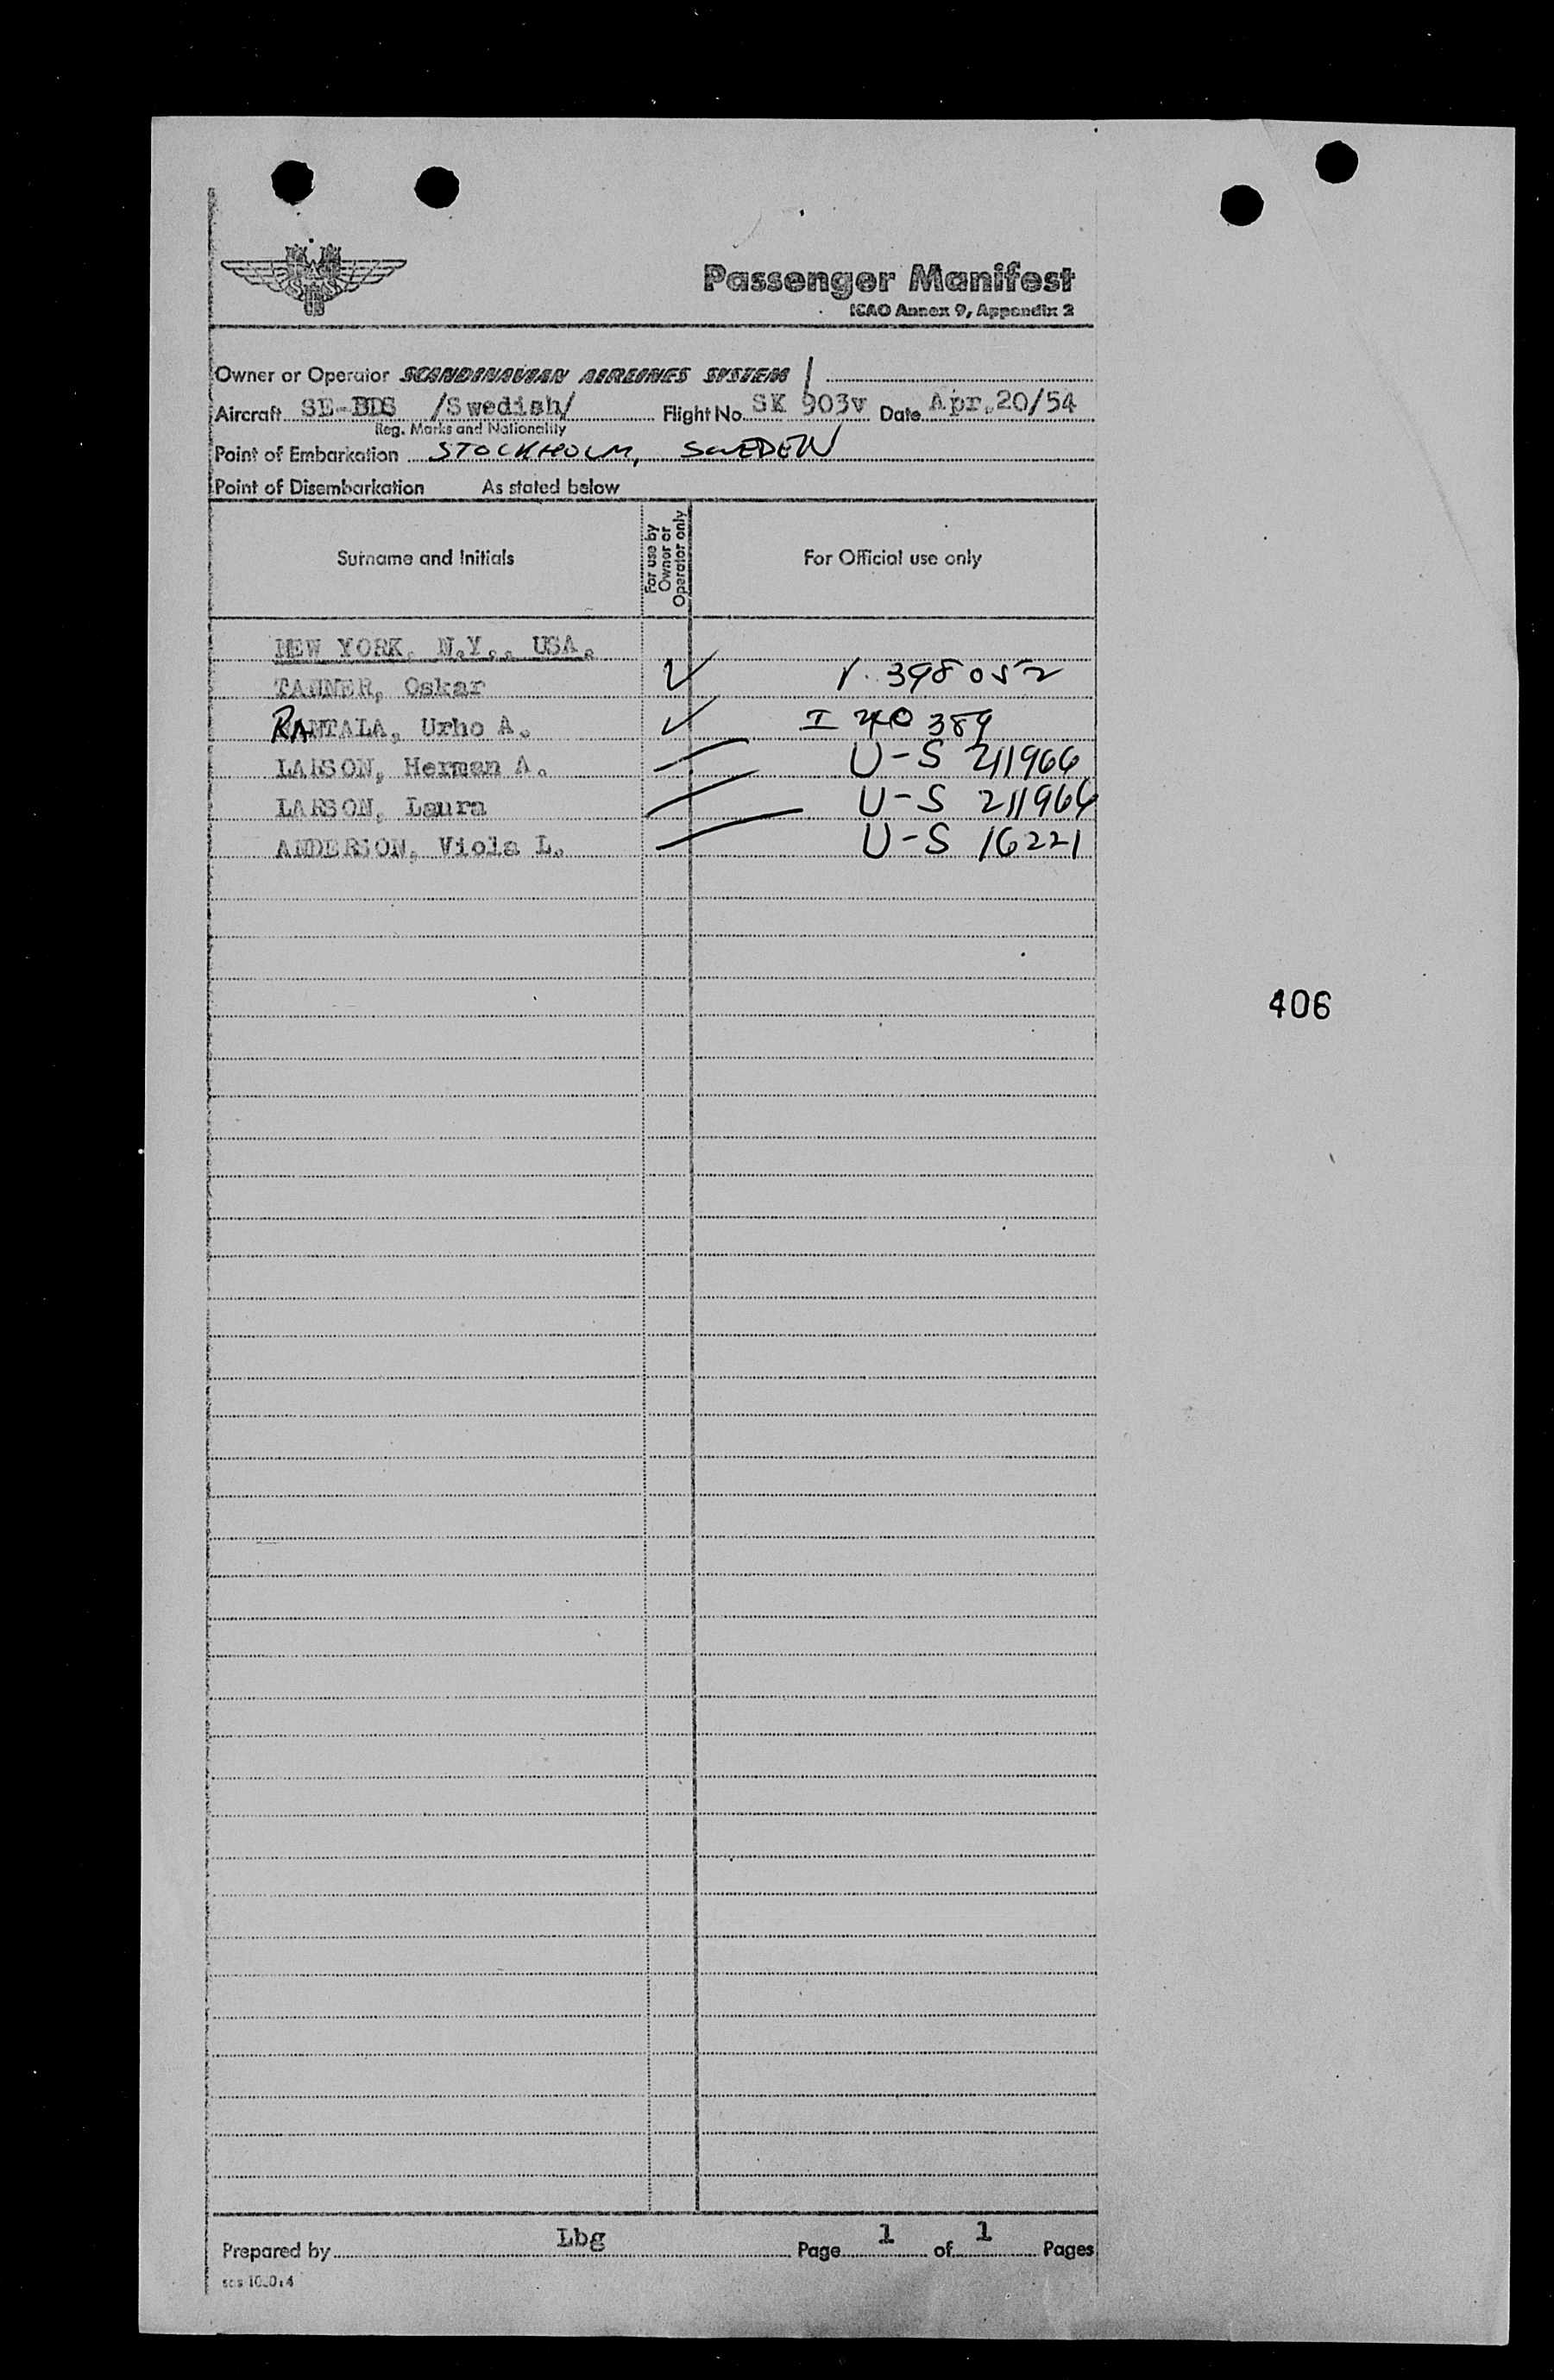 SAS
Passenger Manifest
ICAO Annex 9, Appendix 2
Owner or Operator SCANDINAVIAN AIRLINES SYSTEM
Aircraft SE-BDS /Swedish/ Flight No. SK 903v Date Apr.20/54
Reg. Marks and Nationality
Point of Embarkation STOCKHOLM, SWEDEN
Point of Disembarkation As stated below
Surname and Initials For use by Owner or Operator only For Official use only
NEW YORK, N.Y., USA.
TANNER, Oskar V. 398052
RANTALA, Urho A. I 240389
LARSON, Herman A. U-S 211966
LARSON, Laura U-S 211966
ANDERSON, Viola L. U-S 16221
406
Prepared by Lbg Page 1 of 1 Pages